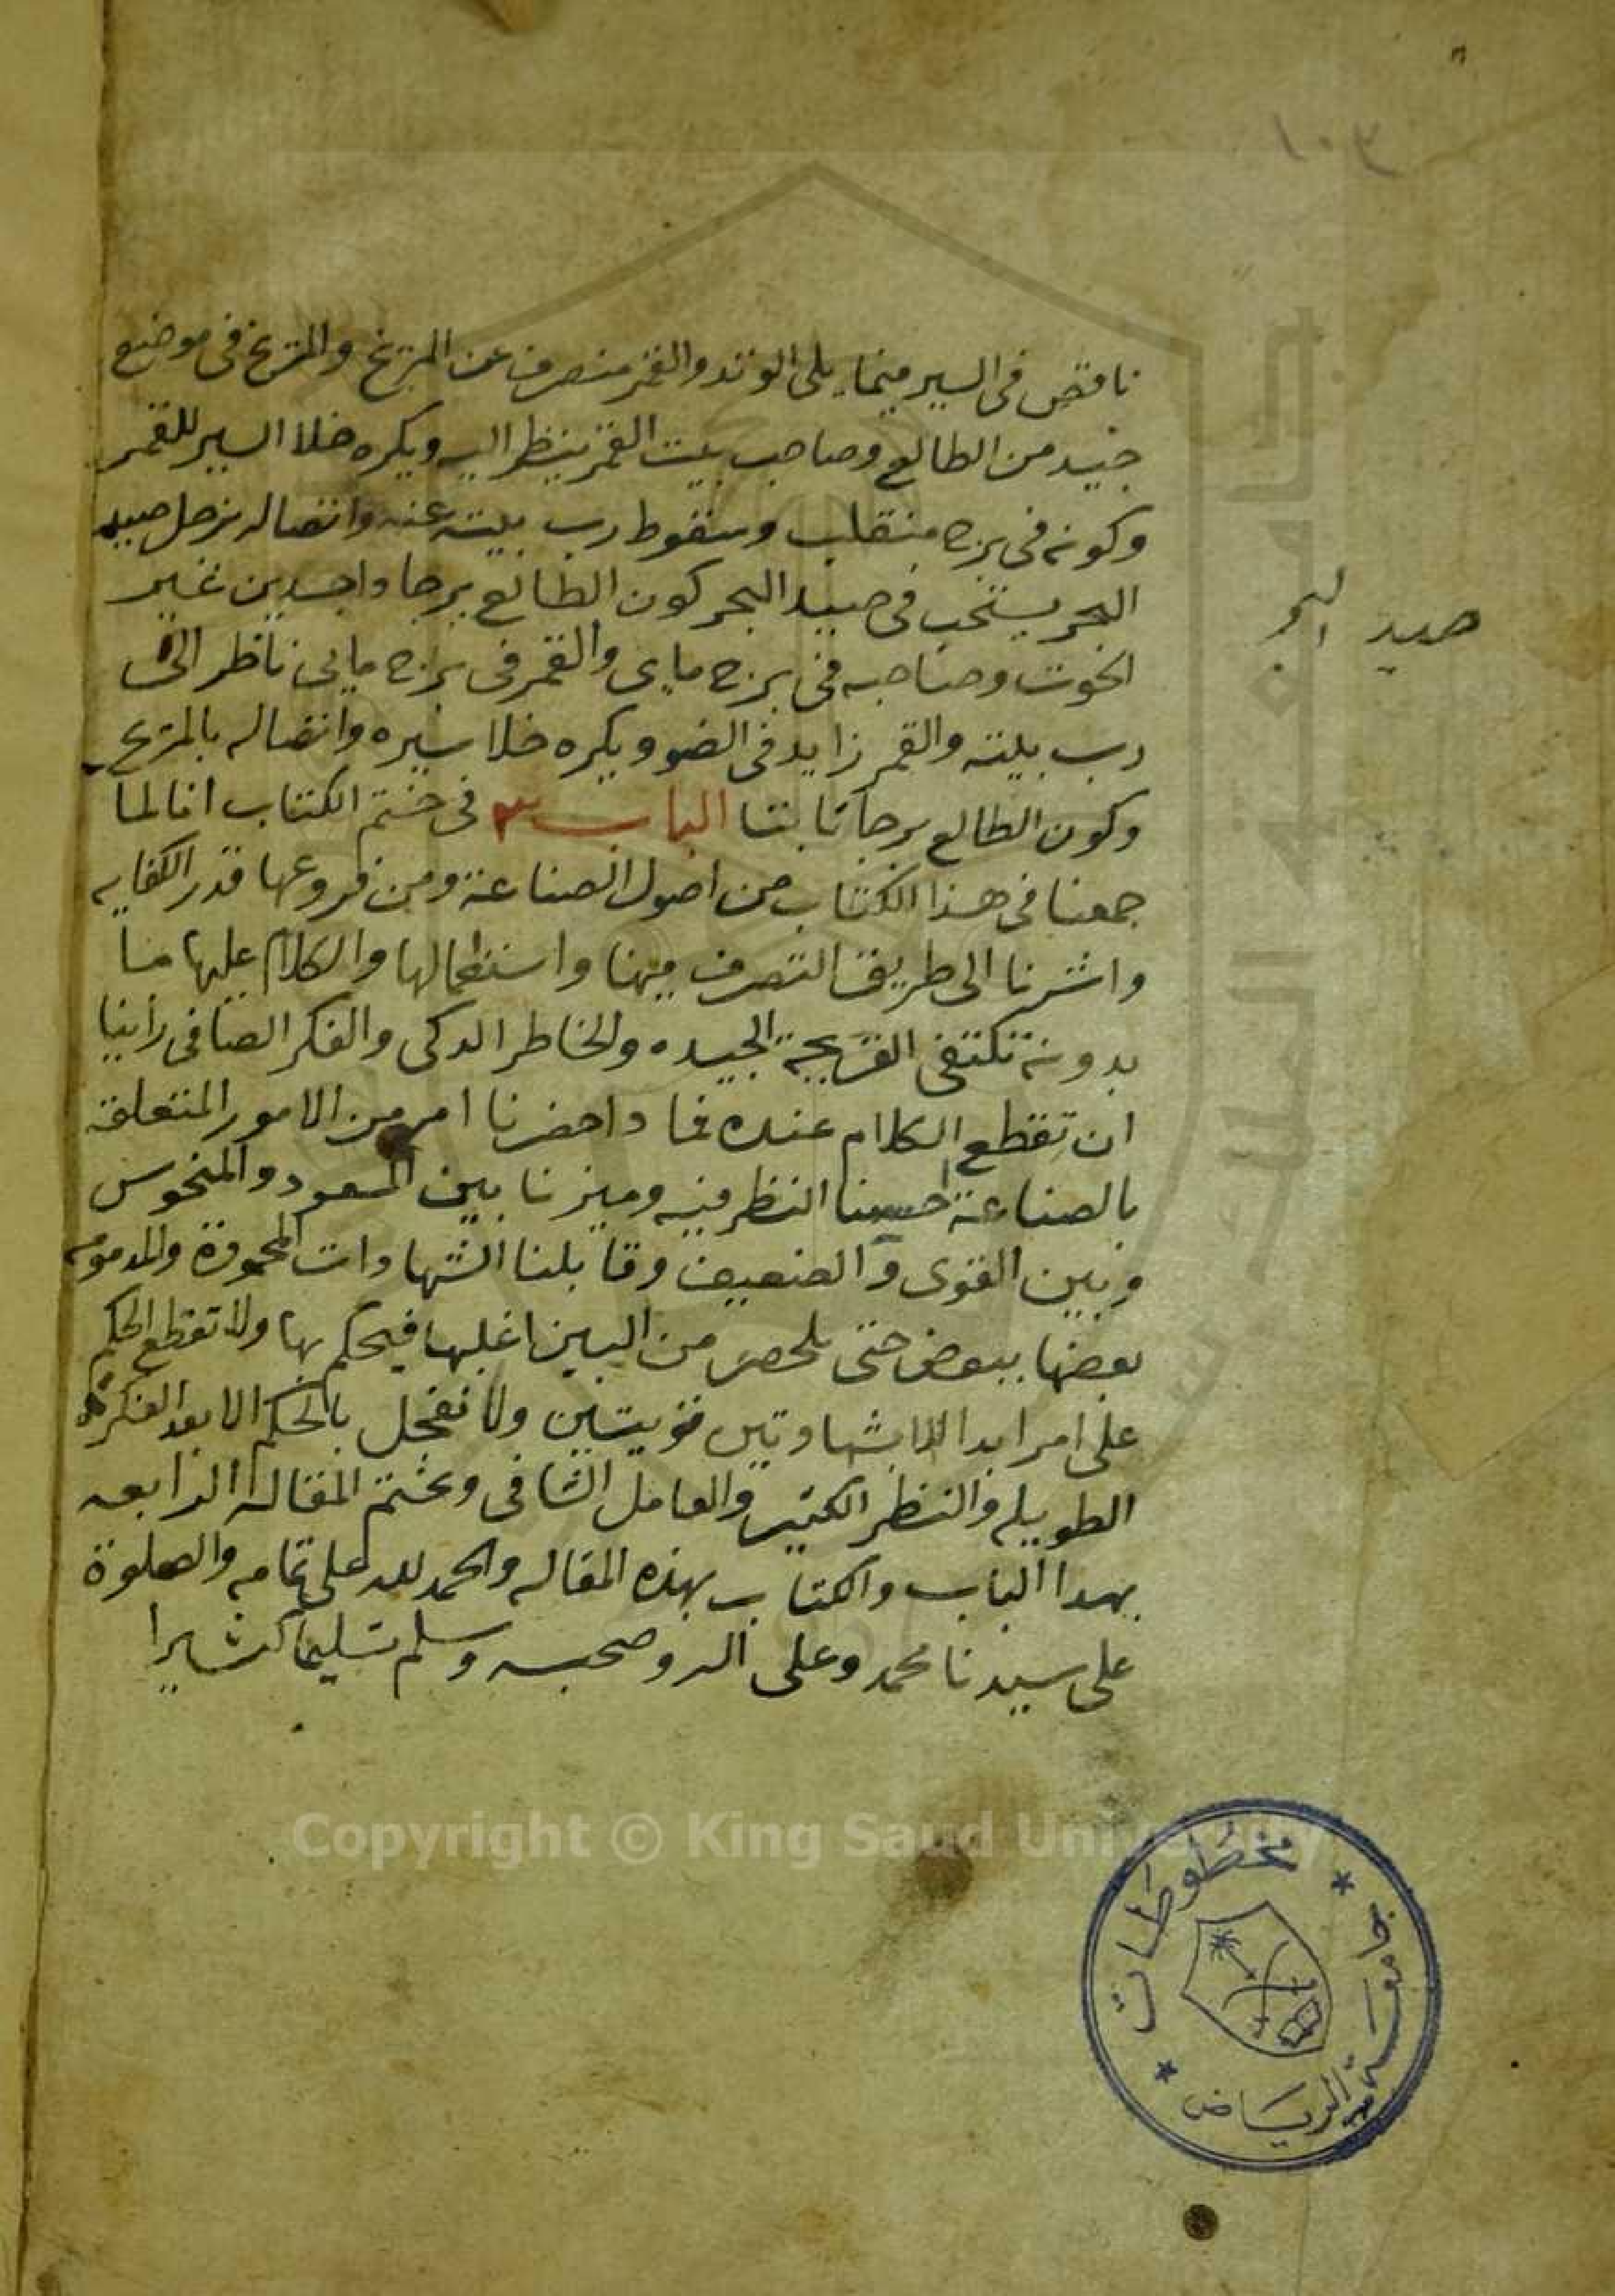 ١٠٣
ناقص فى السير فيما يلى الوتد والقمر منصرف عن المريخ والمريخ فى موضع
جيد من الطالع وصاحب بيت القمر ينظر اليه ويكره خلا السير للقمر
وكونه فى برج منقلب وسقوط رب بيته عنه واتصاله بزحل صيد
البحر يستحب فى صيد البحر كون الطالع برجا واجسدين غير
الحوت وصاحبه فى برج ماى والقمر فى برج مايى ناظر الى
رب بيته والقمر زايد فى الضو ويكره خلا سيره واتصاله بالمريخ
وكون الطالع برجا ثابتا الباب فى ختم الكتاب انا لما
جمعنا فى هذا الكتاب من اصول الصناعة ومن فروعها قدر الكفايه
واشرنا الى طريق التصرف فيها واستعمالها والكلام عليها ما
بدونة تكتفى القريحة الجيده والخاطر الدكى والفكر الصافى راينا
ان تقطع الكلام عنده فما داحضرنا امر من الامور المتعلقة
بالصناعة احسنا النظر فيه وميزنا بين المسعود والمنحوس
وبين القوى والضعيف وقابلنا الشهادات المحمودة والمدمومه
بعضها ببعض حتى يلحصر من البين اغلبها فيحكم بها ولا تقطع الحكم
على امر ابدا الا بشهادتين قويتين ولا نعجل بالحكم الا بعد الفكرة
الطويله والنظر الكتير والعامل الشافى ونختم المقالة الرابعه
بهدا الباب والكتاب بهذه المقاله والحمد لله على تمامه والصلوة
على سيدنا محمد وعلى اله وصحبه وسلم تسليما كثيرا
صيد البحر
Copyright © King Saud University
مخطوطات
جامعة الرياض